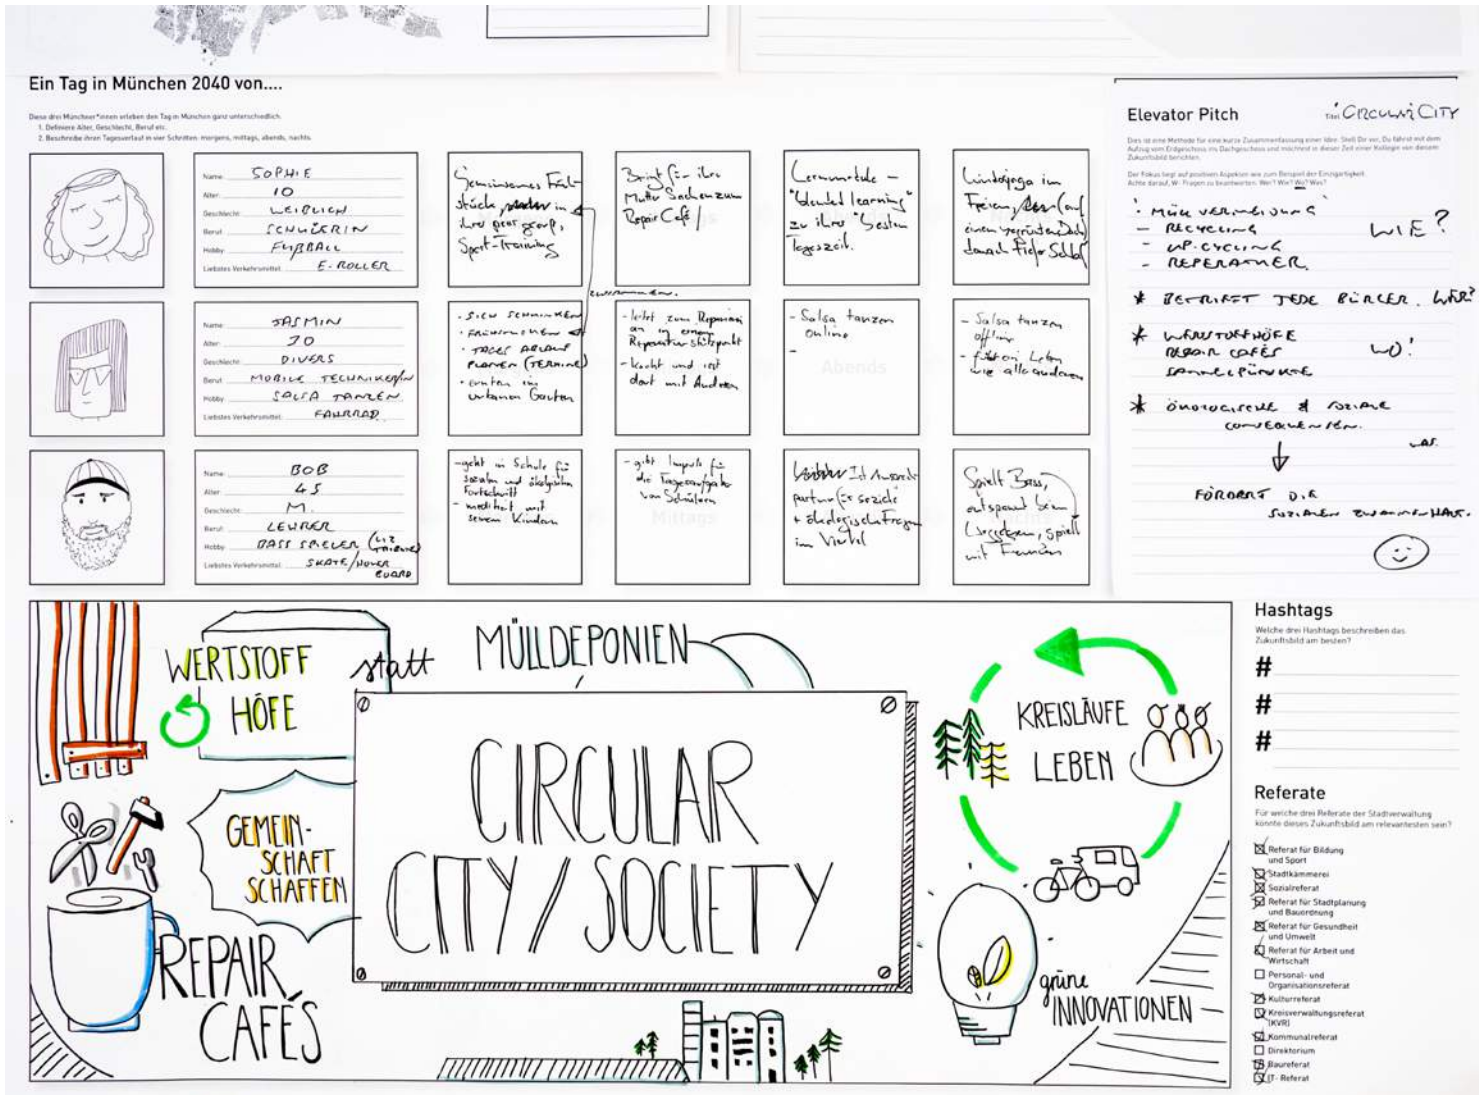 Ein Tag in München 2040 von....
Diese drei Münchner*innen erleben den Tag in München ganz unterschiedlich.
1. Definiere Alter, Geschlecht, Beruf etc.
2. Beschreibe ihren Tagesverlauf in vier Schritten: morgens, mittags, abends, nachts.
Name: SOPHIE
Alter: 10
Geschlecht: WEIBLICH
Beruf: SCHÜLERIN
Hobby: FUßBALL
Liebstes Verkehrsmittel: E-ROLLER
Gemeinsames Früh-
stück in
ihrer peer group,
Sport-Training
Bringt für ihre
Mutter Sachen zum
Repair Café
Lernmodule –
"blended learning"
zu ihrer "besten
Tageszeit.
im
Freien, (auf
einem begrünten Dach)
danach tiefer Schlaf
zusammen.
Name: JASMIN
Alter: 30
Geschlecht: DIVERS
Beruf: MOBILE TECHNIKER/IN
Hobby: SALSA TANZEN
Liebstes Verkehrsmittel: FAHRRAD
• SICH SCHMINKEN
• FRÜHSTÜCKEN
• TAGES ABLAUF
PLANEN (TERMINE)
• ernten im
urbanen Garten
- leitet zum Reparieren
an in einem
Reparaturstützpunkt
- kocht und isst
dort mit Anderen
- Salsa tanzen
online
-
Abends
- Salsa tanzen
offline
- führt ein Leben
wie alle anderen
Name: BOB
Alter: 45
Geschlecht: M.
Beruf: LEHRER
Hobby: BASS SPIELER
Liebstes Verkehrsmittel: SKATE/HOVER
BOARD
- geht in Schule für
sozialen und ökologischen
Fortschritt
- meditiert mit
seinen Kindern
- gibt Impuls für
die Tagesaufgabe
von Schülern
Mittags
Ist Ansprech-
partner für soziale
+ ökologische Fragen
im Viertel
Spielt Bass,
entspannt beim
spielt
mit Freunden
Elevator Pitch
Titel: CIRCULAR CITY
Dies ist eine Methode für eine kurze Zusammenfassung einer Idee. Stell Dir vor, Du fährst mit dem
Aufzug vom Erdgeschoss ins Dachgeschoss und möchtest in dieser Zeit einer Kollegin von diesem
Zukunftsbild berichten.
Der Fokus liegt auf positiven Aspekten wie zum Beispiel der Einzigartigkeit.
Achte darauf, W- Fragen zu beantworten: Wer? Wie? Wo? Was?
MÜLL VERMEIDUNG
— RECYCLING WIE?
- UP-CYCLING
- REPERATUER.
* BETRIFFT JEDE BÜRGER. WER?
* WERTSTOFFHÖFE
REPAIR CAFÉS WO?
SAMMELPÜNKTE
* ÖKOLOGISCHE & SOZIALE
CONSEQUENZEN.
WAS.
FÖRDERT DIE
SOZIALEN ZUSAMMENHALT.
WERTSTOFF
HÖFE
statt
MÜLLDEPONIEN
GEMEIN-
SCHAFT
SCHAFFEN
REPAIR
CAFÉS
CIRCULAR
CITY / SOCIETY
KREISLÄUFE
LEBEN
grüne
INNOVATIONEN
Hashtags
Welche drei Hashtags beschreiben das
Zukunftsbild am besten?
#
#
#
Referate
Für welche drei Referate der Stadtverwaltung
könnte dieses Zukunftsbild am relevantesten sein?
Referat für Bildung
und Sport
Stadtkämmerei
Sozialreferat
Referat für Stadtplanung
und Bauordnung
Referat für Gesundheit
und Umwelt
Referat für Arbeit und
Wirtschaft
Personal- und
Organisationsreferat
Kulturreferat
Kreisverwaltungsreferat
(KVR)
Kommunalreferat
Direktorium
Baureferat
IT- Referat